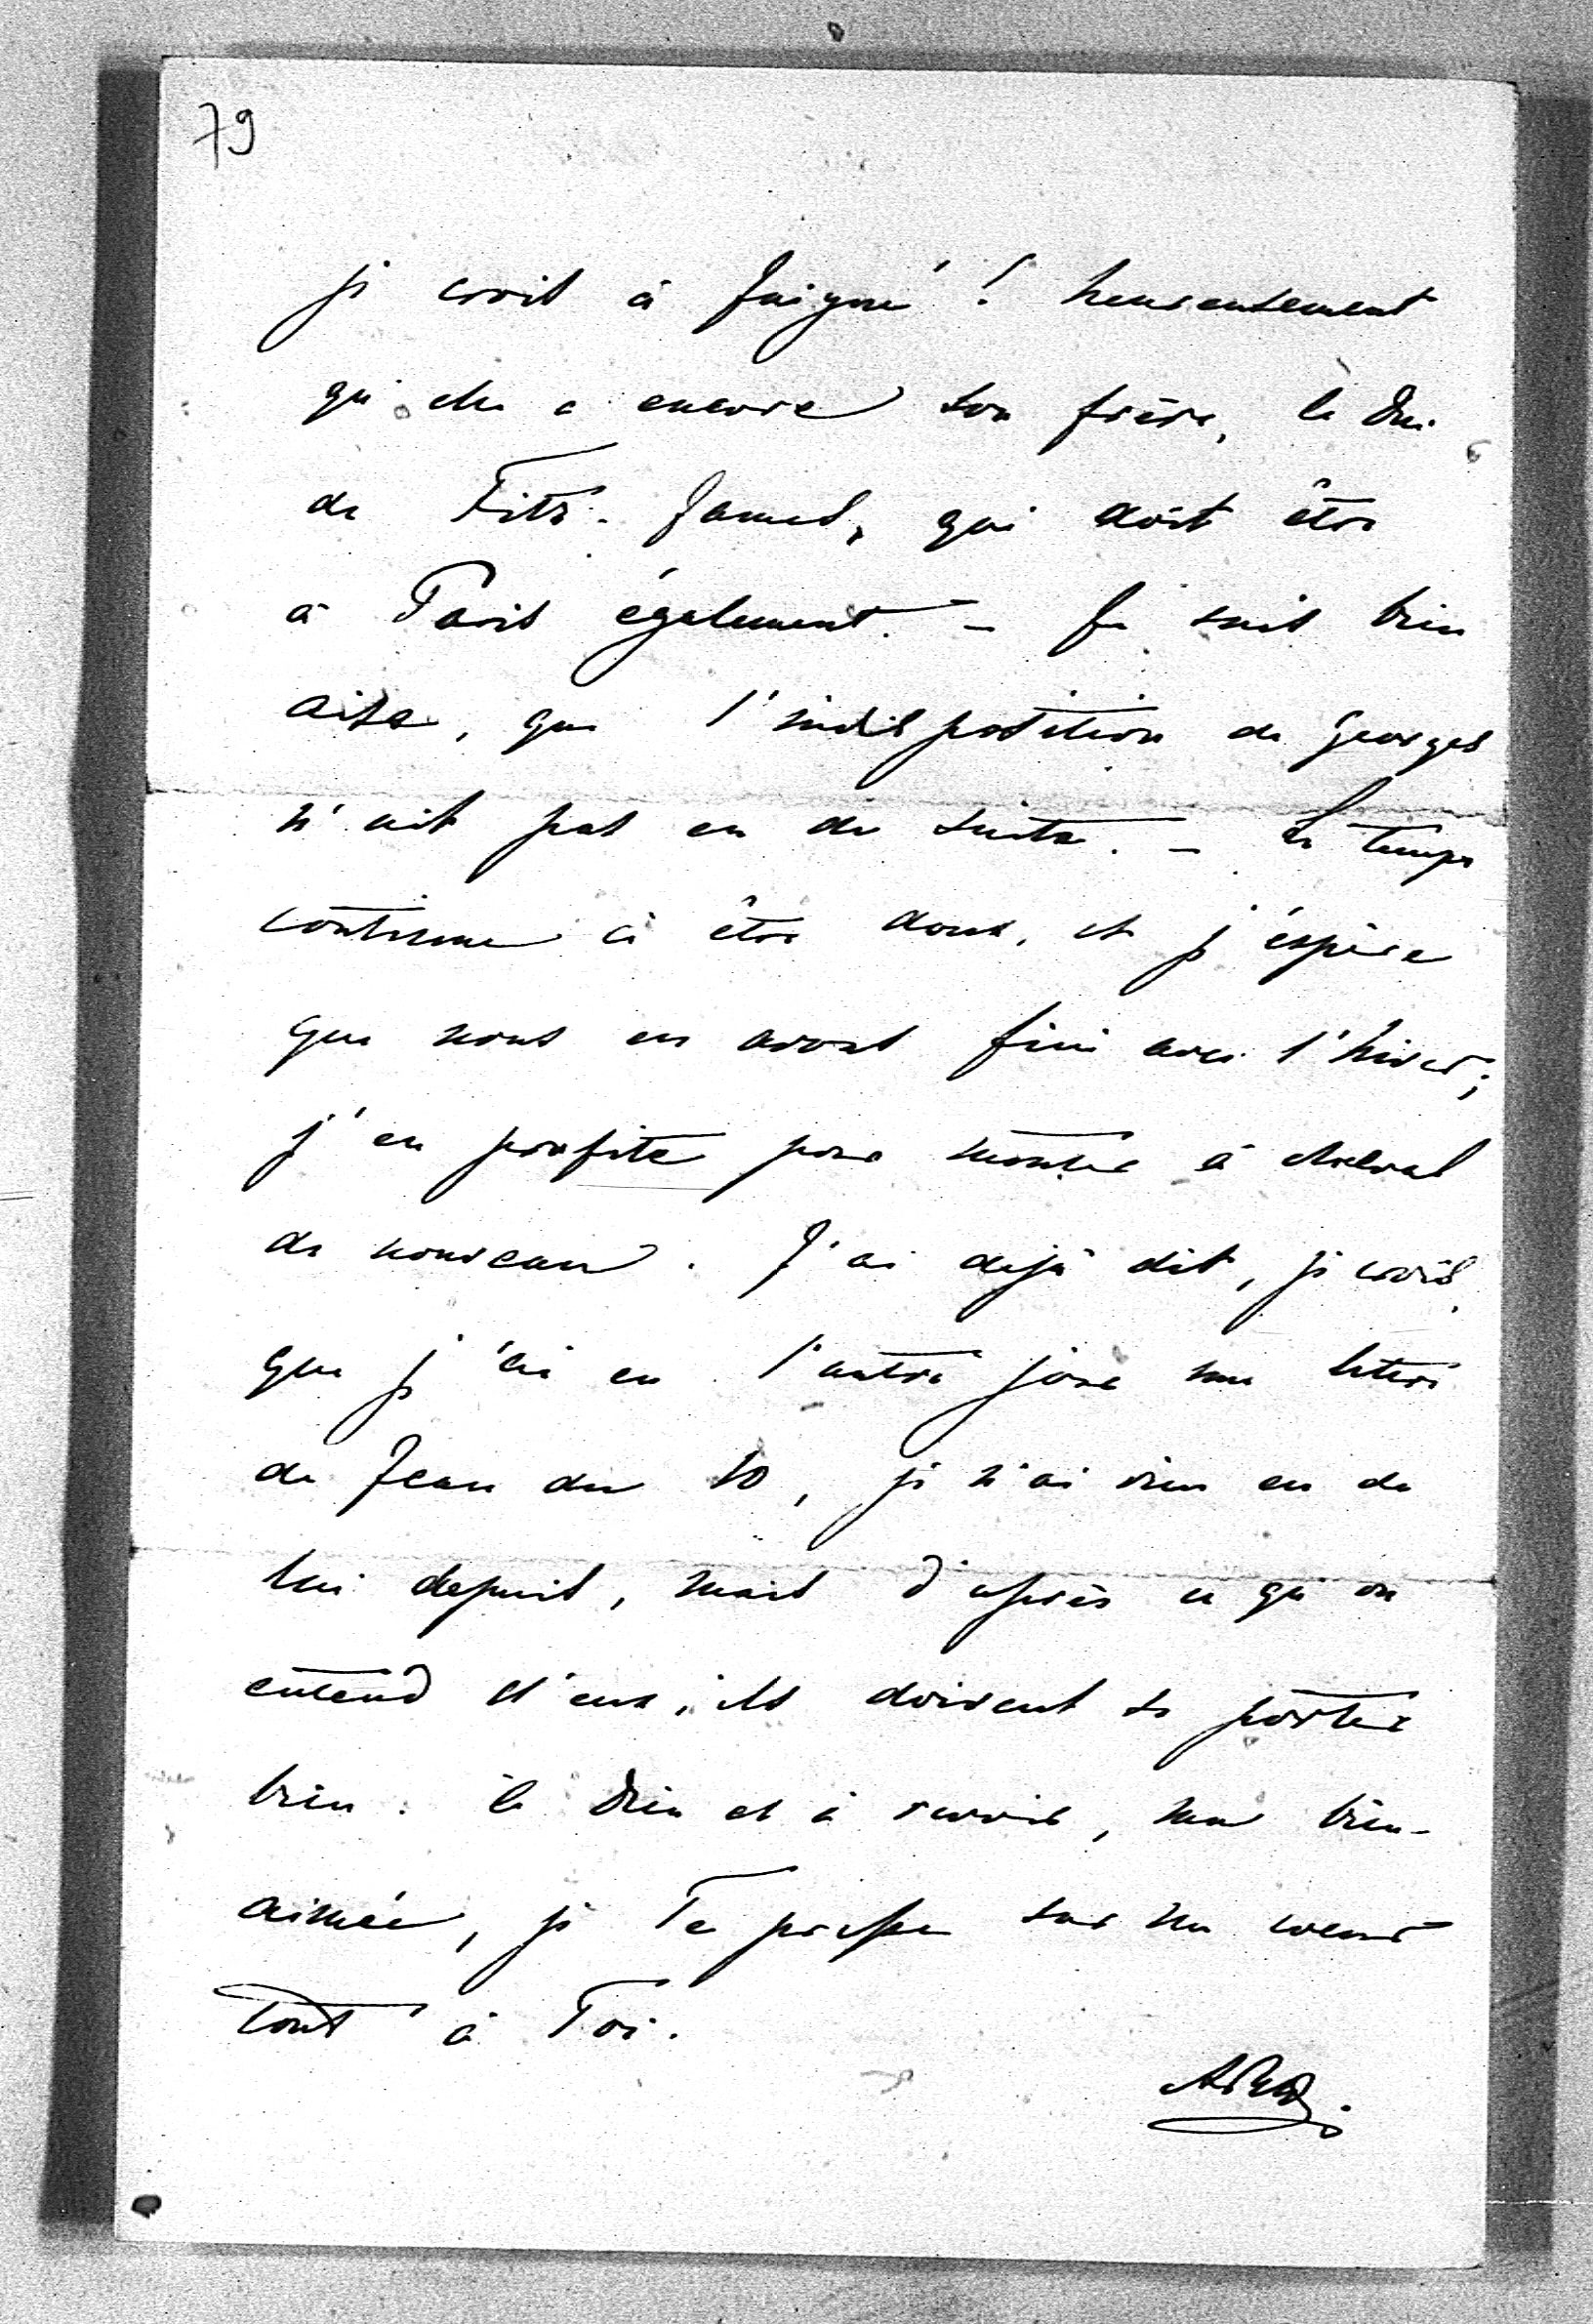 79
je crois à Juigné! heureusement
qu'elle a encore son frère, le Duc
de Fitz-James, qui doit être
à Paris également. — Je suis bien
aise, que l'indisposition de Georges
n'ait pas eu de suite. — Le temps
continue à être doux, et j'éspère
que nous en avons fini avec l'hiver;
j'en profite pour monter à cheval
de nouveau. J'ai dejà dit, je crois,
que j'ai eu l'autre jour une lettre
de Jean du 10, je n'ai rien eu de
lui depuis, mais d'après ce qu'on
entend d'eux, ils doivent se porter
bien. à Dieu et à revoir, ma bien-
aimée, je Te presse sur mon coeur
tout à Toi.